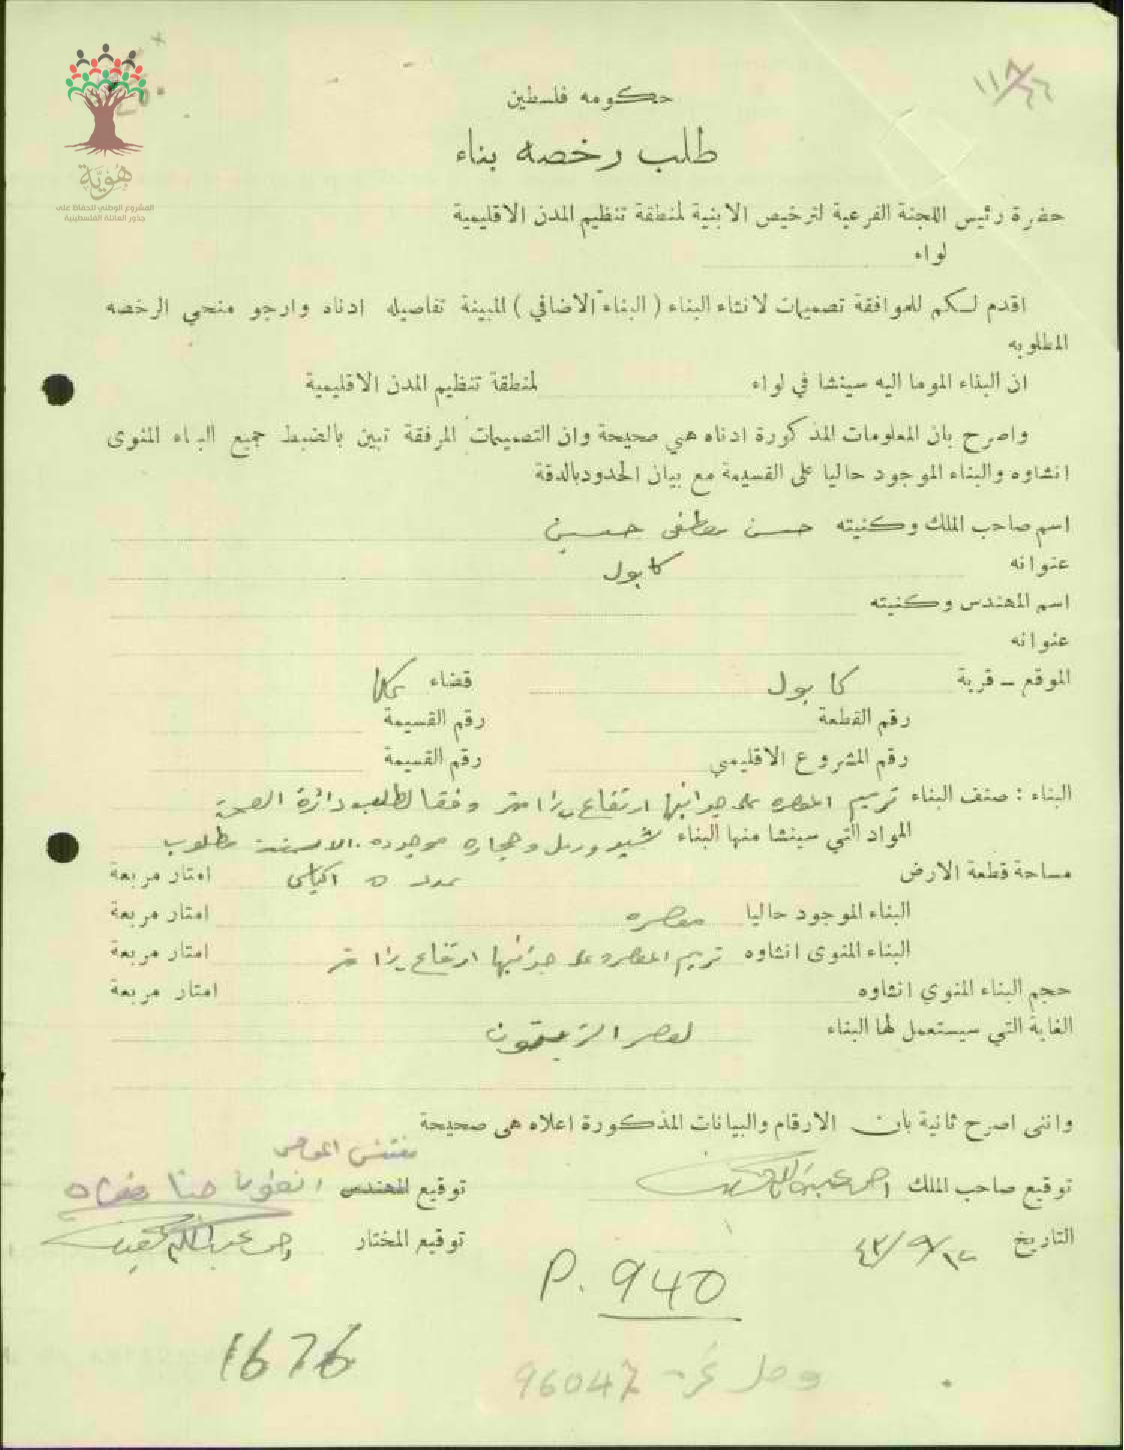 هوية
المشروع الوطني للحفاظ على
جذور العائلة الفلسطينية
حكومه فلسطين
طلب رخصه بناء
حضرة رئيس اللجنة الفرعية لترخيص الابنية لمنطقة تنظيم المدن الاقليمية
لواء
اقدم لكم للموافقة تصميمات لانشاء البناء ( البناء الاضافي ) المبينة تفاصيله ادناه وارجو منحي الرخصه
المطلوبه
ان البناء الموما اليه سينشا في لواء لمنطقة تنظيم المدن الاقليمية
واصرح بان المعلومات المذكورة ادناه هي صحيحة وان التصميمات المرفقة تبين بالضبط جميع البناء المنوى
انشاوه والبناء الموجود حاليا على القسيمة مع بيان الحدود بالدقة
اسم صاحب الملك وكنيته حسن مصطفى حسين
عنوانه كابول
اسم المهندس وكنيته
عنوانه
الموقع ــ قرية كابول قضاء عكا
رقم القطعة رقم القسيمة
رقم المشروع الاقليمي رقم القسيمة
البناء : صنف البناء ترميم المعصره على جدرانها ارتفاع متر وفقا لطلب دائرة الصحة
المواد التي سينشا منها البناء شيد ورمل وحجاره موجوده . الاسمنت مطلوب
مساحة قطعة الارض عدد ٥ اكياس امتار مربعة
البناء الموجود حاليا معصره امتار مربعة
البناء المنوى انشاوه ترميم المعصره على جدرانها ارتفاع متر امتار مربعة
حجم البناء المنوي انشاوه امتار مربعة
الغاية التي سيستعمل لها البناء لعصر الزيتون
وانني اصرح ثانية بان الارقام والبيانات المذكورة اعلاه هي صحيحة
مفتش
توقيع صاحب الملك توقيع المهندس انطون حنا
التاريخ ١٢/٩/٤٣ توقيع المختار
P. 940
1676
وصل نمرة 96047